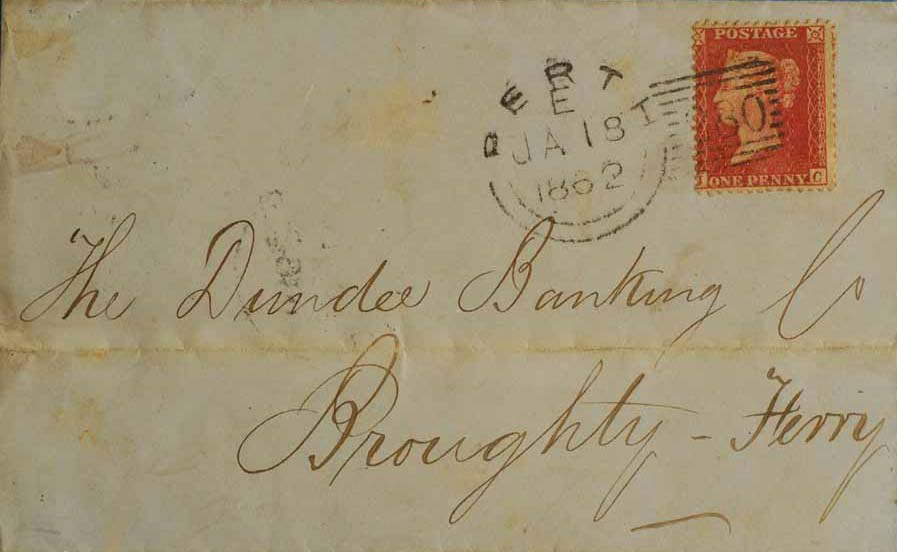 POSTAGE
PERT
E
JA 18
1862
I C
ONE PENNY
The Dundee Banking Co
Broughty - Ferry